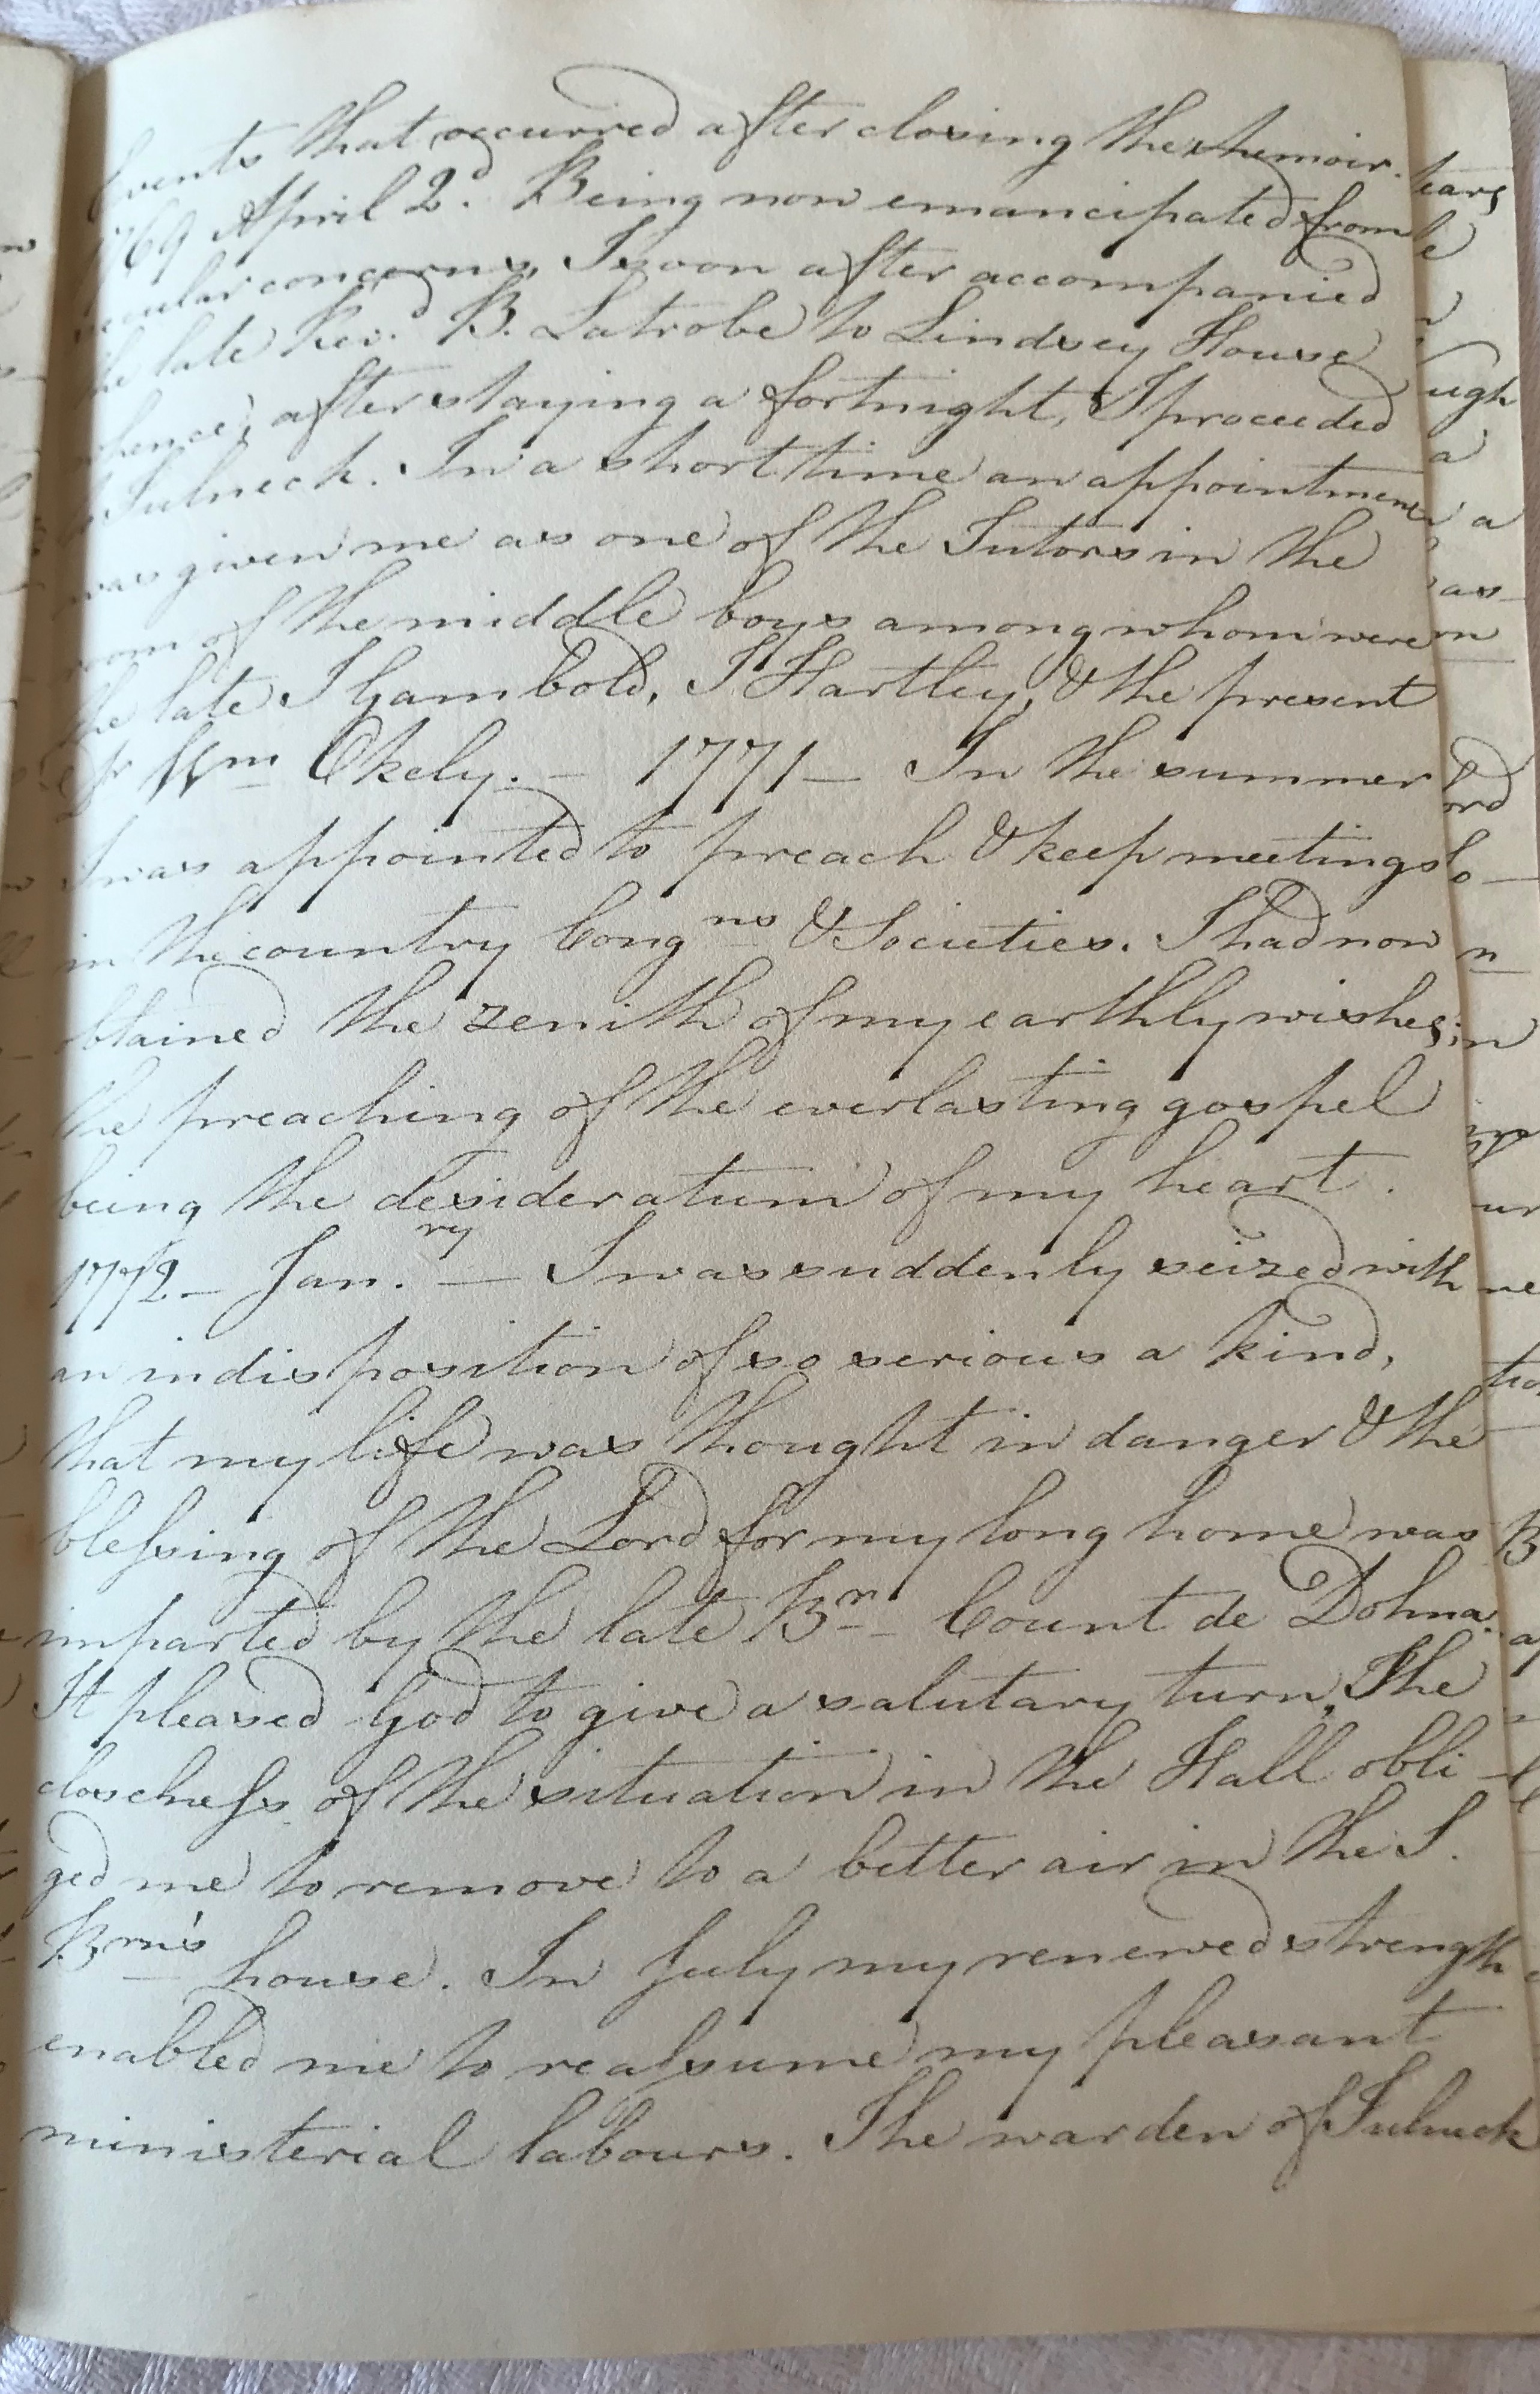 Events that occurred after closing the memoir.
1769 April 2d. Being now emancipated from
secular concerns, I soon after accompanied
the late Revd. B. Latrobe to Lindsey House
whence, after staying a fortnight, I proceeded
Fulneck. In a short time an appointment
was given me as one of the Tutors in the
room of the middle boys among whom were
the late J Gambold, J Hartley, & the present
Wm Okely. — 1771 — In the summer
I was appointed to preach & keep meetings
in the country Congns & Societies. I had now
obtained the zenith of my earthly wishes;
the preaching of the everlasting gospel
being the desideratum of my heart.
1772 — Jan.ry — I was suddenly seized with
an indisposition of so serious a kind,
that my life was thought in danger & the
blessing of the Lord for my long home was
imparted by the late Br. Count de Dohna.
It pleased God to give a salutary turn. The
closeness of the situation in the Hall obli-
ged me to remove to a better air in the S.
Brn's house. In July my renewed strength
enabled me to reassume my pleasant
ministerial labours. The warden of Fulneck